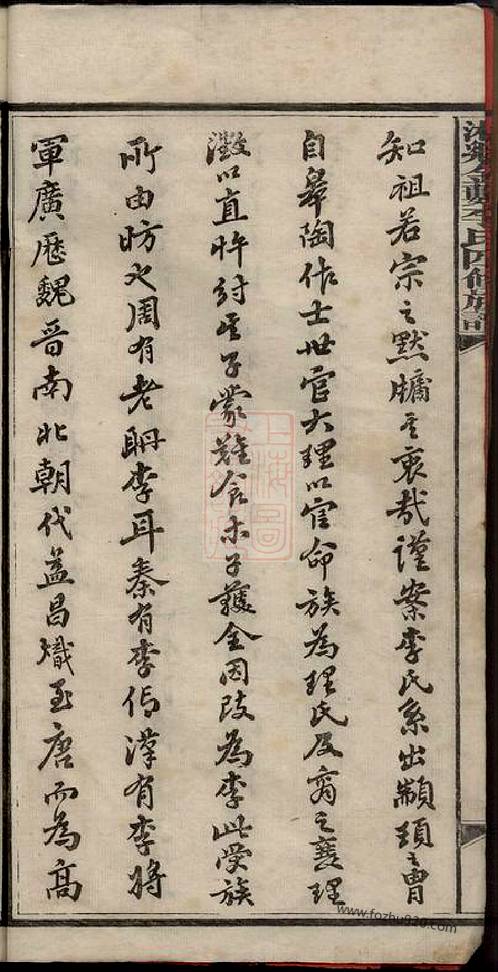 湘鄉金李氏四修族譜
知祖若宗之默牖其衷哉謹案李氏系出顓頊之曾
自皋陶作士世官大理以官命族為理氏及商之理
徵以直忤紂其子蒙難食木子獲全因改為李此受族
所由昉也周有老耼李耳秦有李信漢有李將
軍廣歷魏晉南北朝代益昌熾至唐而為高
上海圖
www.fozhu920.com